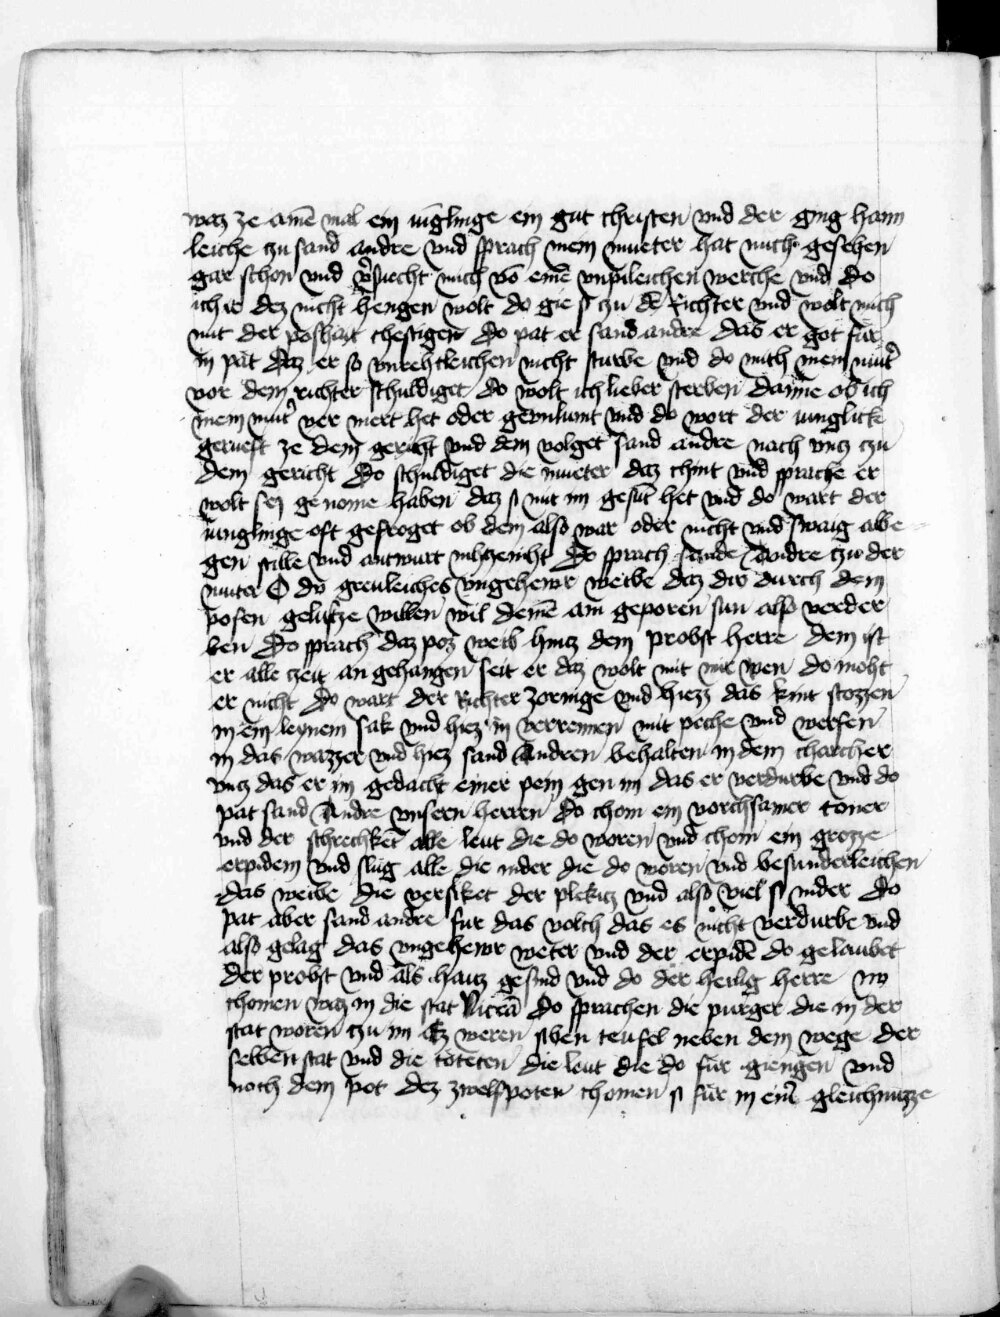 waz ze aine͂ mal ein iu͂glinge ein gut christen vnd der ging haim
leiche zu sand andre vnd sprach mein mueter hat mich gesehen
gar schon vnd v͂sucht mich vo͂ eine͂ vnpileichen werche vnd do
ich ir dez nicht hengen wolt do gie si zu de͂ Richter vnd wolt mich
mit der poshait chestigen do pat er sand andre das er got fur
in pat daz er so vnrehtleichen nicht sturbe vnd do mich mein mut͂
vor dem richter schuldiget do wolt ich lieber sterben danne ob ich
mein mut͂ ver mert het oder geunlumt vnd do wort der iunglick
geruest ze dem gericht vnd dem volget sand andre nach vncz czu
dem gericht do schuldiget die mueter daz chint vnd sprache er
wolt sey genome haben daz si mit im gesu͂t het vnd do wart der
iunglinge oft gefroget ob dem also war oder nicht vnd swaig alle
gen stille vnd antwurt nihczenicht do sprach sande Andre czu der
muter O du greuleiches vngehewr weibe daz dw durch dem
posen geluscze willen wil deine͂ ain geporen sun also verder
ben do sprach daz poz weib hincz dem probst herre dem ist
er alle zeit an gehangen seit er daz wolt mit mir wen do moht
er nicht do wart der Richter zornige vnd hiezz das kint stozzen
in ein leynein sak vnd hiez in verrennen mit peche vnd werfen
in das wazzer vnd hiez sand Andren behalten in dem charcher
vncz das er im gedacht einer pein gen im das er verdurbe vnd do
pat sand Andre vnseren herren do chom ein vorchsamer toner
vnd der schrechket alle leut die do woren vnd chom ein grozze
erpidem vnd slug alle die nider die do woren vnd besunderleichen
das weibe die versiket der plekcz vnd also viel si nider do
pat aber sand andre fur das volch das es nicht verdurbe vnd
also gelag das vngehewr weter vnd der erpide͂ do gelaubet
der probst vnd als hauz gesind vnd do der heilig herre nv
chomen waz in die stat Nicea͂ do sprachen die purger die in der
stat woren zu im Ez weren siben teufel neben dem wege der
selben stat vnd die toteten die leut die do fur giengen vnd
noch dem pot dez zwelfpoten chomen si fur in eine͂ gleichnuzze